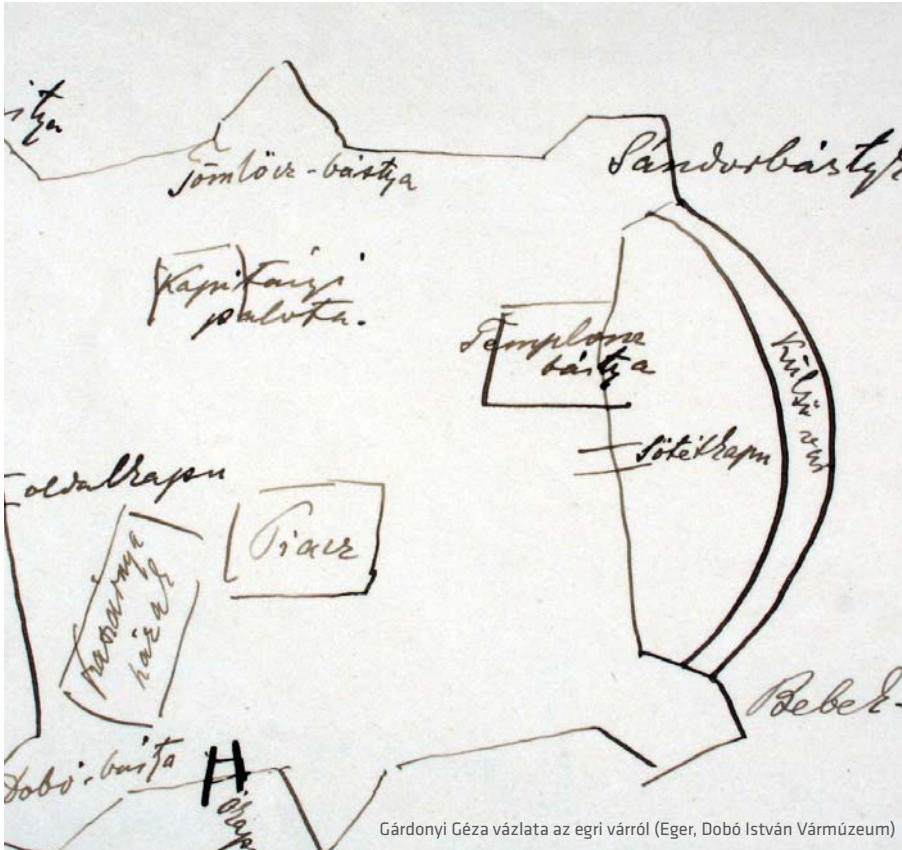 Tömlöcz-bástya
Sándorbástya
Kapitányi
palota.
Templom
bástya
Külső vár
Sötétkapu
oldalkapu
Piacz
katonai
házak
Bebek-
Dobó-bástya
Gárdonyi Géza vázlata az egri várról (Eger, Dobó István Vármúzeum)